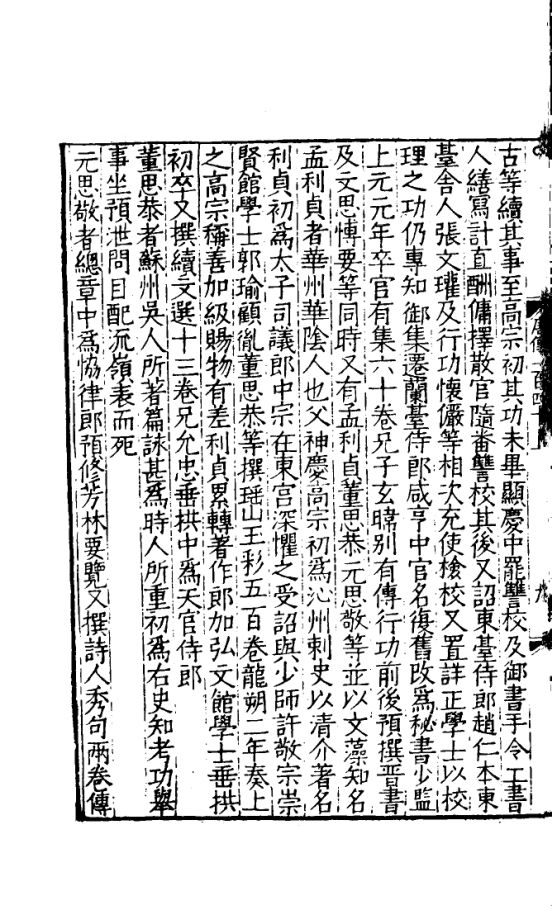 古等續其事至高宗初其功未畢顯慶中罷讐校及御書手令工書
人繕寫計直酬傭擇散官隨番讐校其後又詔東臺侍郎趙仁本東
臺舍人張文瓘及行功懷儼等相次充使檢校又置詳正學士以校
理之功仍專知御集遷蘭臺侍郎咸亨中官名復舊改爲秘書少監
上元元年卒官有集六十卷兄子玄暐别有傳行功前後預撰晋書
及文思博要等同時又有孟利貞董思恭元思敬等並以文藻知名
孟利貞者華州華陰人也父神慶高宗初爲沁州刺史以清介著名
利貞初爲太子司議郎中宗在東宫深懼之受詔與少師許敬宗崇
賢館學士郭瑜顧胤董思恭等撰瑶山玉彩五百卷龍朔二年奏上
之高宗稱善加級賜物有差利貞累轉著作郎加弘文館學士垂拱
初卒又撰續文選十三卷兄允忠垂拱中爲天官侍郎
董思恭者蘇州吳人所著篇詠甚爲時人所重初爲右史知考功舉
事坐預泄問目配流嶺表而死
元思敬者總章中爲協律郎預修芳林要覽又撰詩人秀句兩卷傳